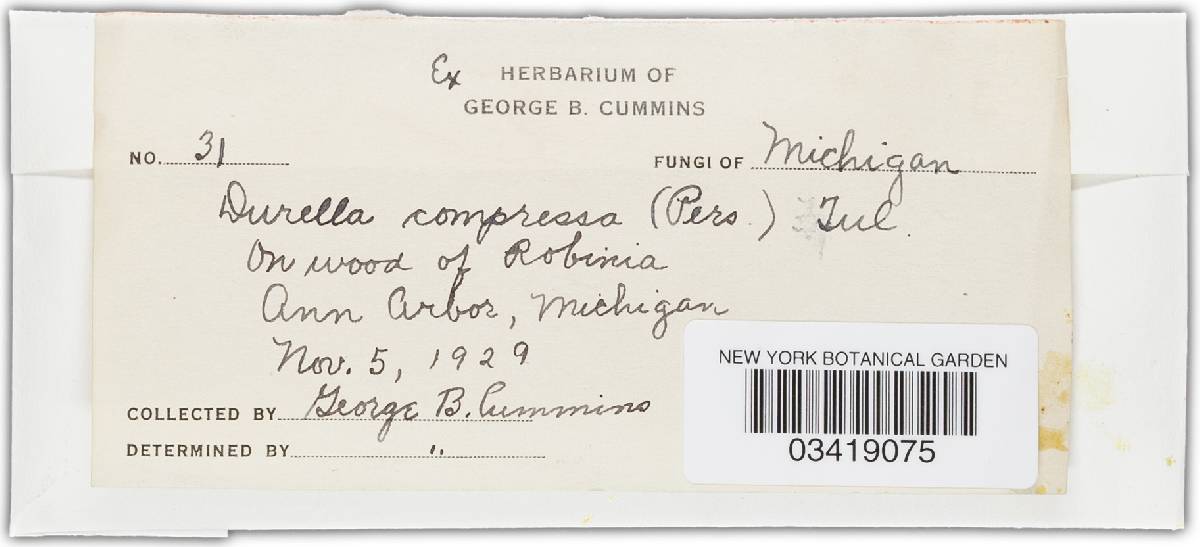 Ex HERBARIUM OF
GEORGE B. CUMMINS
NO. 31 FUNGI OF Michigan
Durella compressa (Pers.) Tul.
On wood of Robinia
Ann Arbor, Michigan
Nov. 5, 1929
COLLECTED BY George B. Cummins
DETERMINED BY "
NEW YORK BOTANICAL GARDEN
03419075